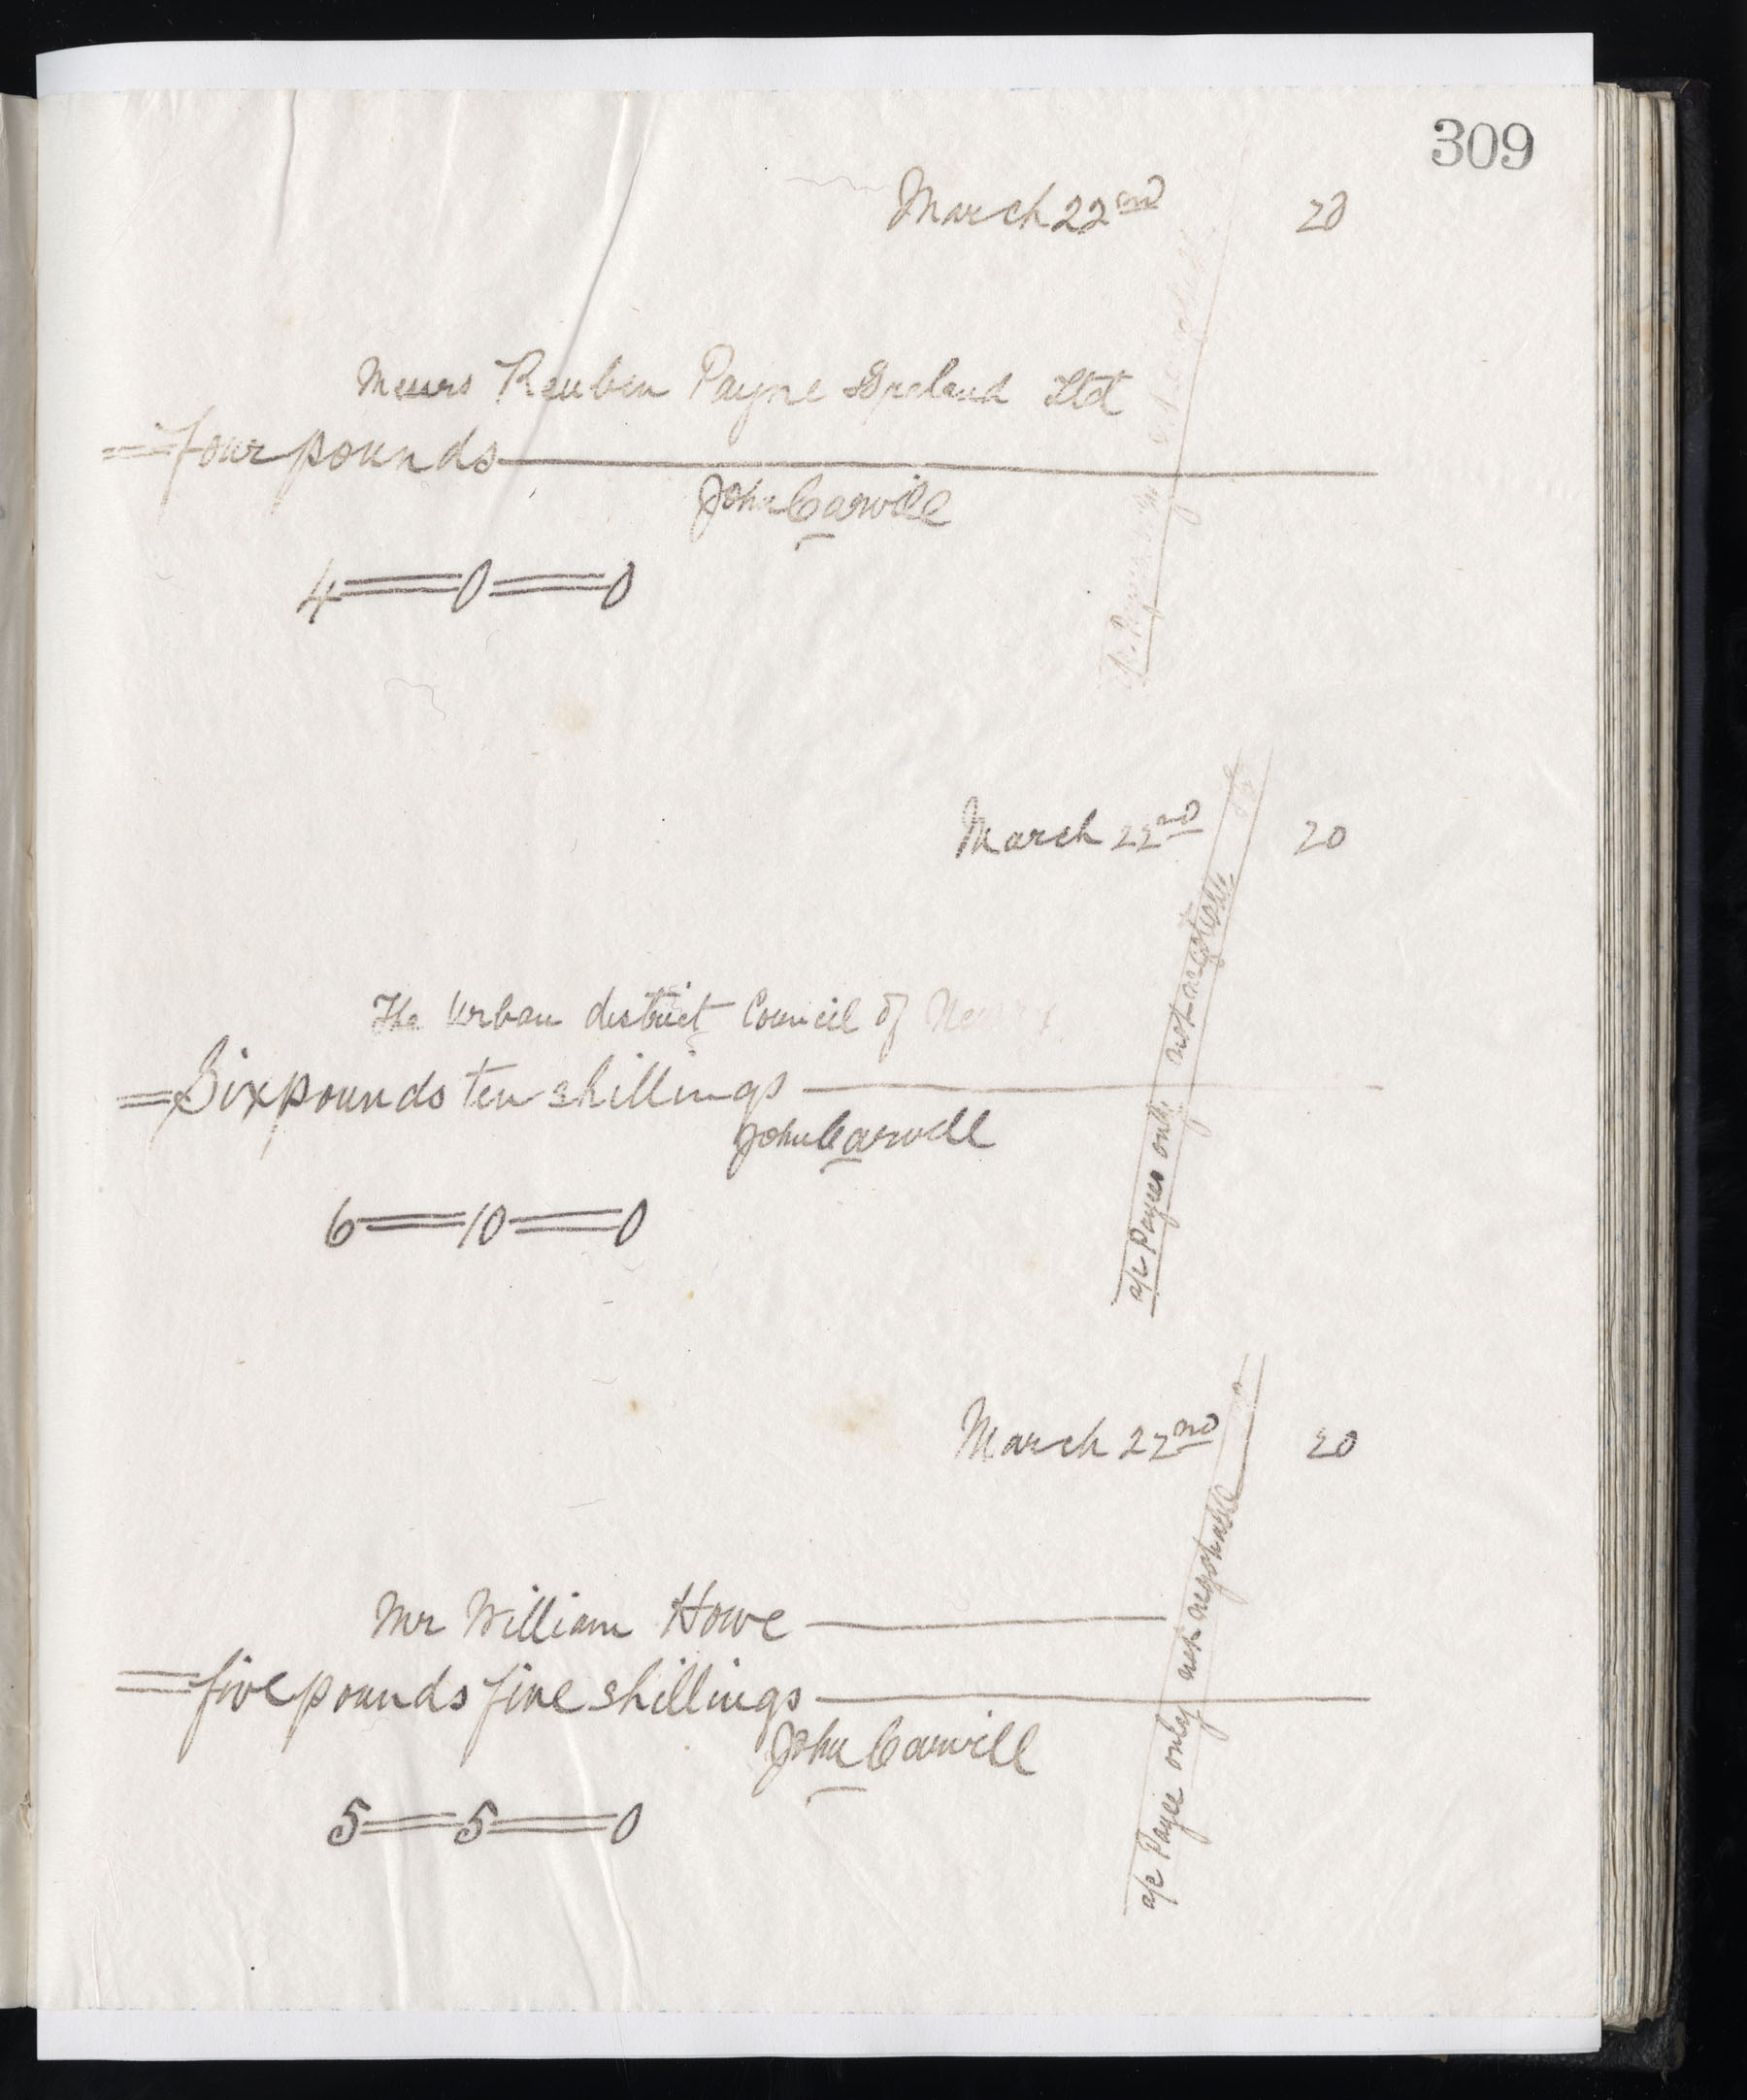 309
March 22nd 20
Messrs Reuben Payne Ireland Ltd
= four pounds
John Carvill
4 = 0 = 0
a/c Payees only
March 22nd 20
The Urban district Council of
= Six pounds ten shillings
John Carvill
6 = 10 = 0
a/c Payees only not negotiable
March 22nd 20
Mr William Howe
= five pounds five shillings
John Carvill
5 = 5 = 0
a/c Payee only not negotiable